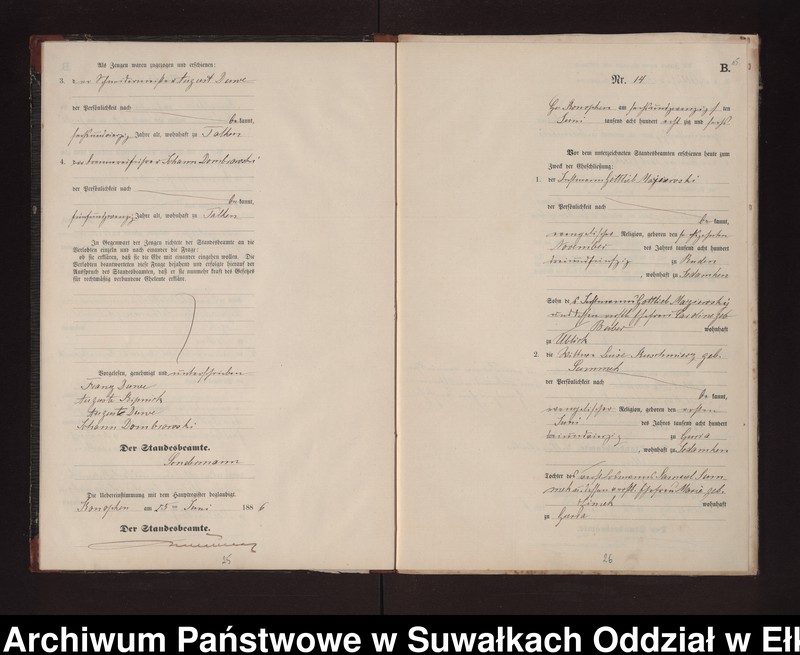 Als Zeugen waren zugezogen und erschienen:
3. der Schneidermeister August Duwe
der Persönlichkeit nach
be kannt,
Jahre alt, wohnhaft zu Talken
4. Johann Dombrowski
der Persönlichkeit nach
be kannt,
fünfundzwanzig Jahre alt, wohnhaft zu Talken
In Gegenwart der Zeugen richtete der Standesbeamte an die
Verlobten einzeln und nach einander die Frage:
ob sie erklären, daß sie die Ehe mit einander eingehen wollen. Die
Verlobten beantworteten diese Frage bejahend und erfolgte hierauf der
Ausspruch des Standesbeamten, daß er sie nunmehr kraft des Gesetzes
für rechtmäßig verbundene Eheleute erkläre.
Vorgelesen, genehmigt und unterschrieben
Franz Duwe
Auguste
August Duwe
Johann Dombrowski
Der Standesbeamte.
Die Uebereinstimmung mit dem Hauptregister beglaubigt.
Konopken am 25 ten Juni 188 6
Der Standesbeamte.
25
B.
6
Nr. 14
Gr. Konopken am sechsundzwanzigsten
Juni tausend acht hundert acht zig und sechs
Vor dem unterzeichneten Standesbeamten erschienen heute zum
Zweck der Eheschließung:
1. der Instmann Gottlieb
der Persönlichkeit nach
be kannt,
evangelischer Religion, geboren den sechszehnten
November des Jahres tausend acht hundert
dreiundfünfzig zu Buden
, wohnhaft zu Sdamken
Sohn des Instmanns Gottlieb
und dessen verstb. Ehefrau Caroline geb.
wohnhaft
zu Ublick
2. die Wittwe Luise geb.
der Persönlichkeit nach
be kannt,
evangelischer Religion, geboren den ersten
Juni des Jahres tausend acht hundert
zu Gurra
, wohnhaft zu Sdamken
Tochter des Samuel
Ehefrau Marie geb.
wohnhaft
zu Gurra
26
Archiwum Państwowe w Suwałkach Oddział w Ełk